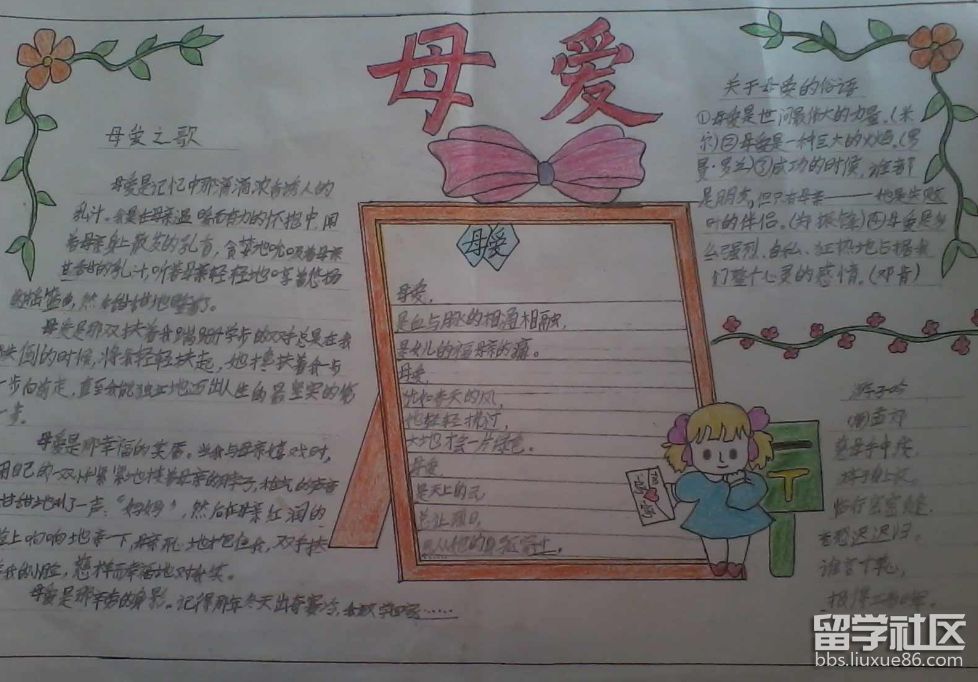 母爱
母爱之歌
母爱是记忆中那滴滴浓香诱人的
乳汁。我是在母亲温暖而有力的怀抱中,闻
着母亲身上散发的乳香,贪婪地吮吸着母亲
的乳汁,听着母亲轻轻地哼着
的摇篮曲,然后甜甜地睡着了。
母爱是那双扶着我蹒跚学步的双手总是在我
倒的时候,将我轻轻扶起,她搀扶着我一步
一步向前走,直至我能独立地迈出人生的最坚实的第
一步。
母爱是那幸福的笑靥。当我与母亲嬉戏时,
用自己的一双小手紧紧地搂着母亲的脖子,稚气的声音
甜甜地叫了一声:“妈妈”,然后在母亲红润的
脸上响响地亲一下,母亲
我的小脸,慈祥而幸福地对我笑。
母爱是那辛苦的身影。记得那年冬天出奇寒冷,
母爱
母爱,
是血与脉的相通相融,
是女儿的福母亲的痛。
母爱,
恍如春天的风,
她轻轻拂过,
大地才会一片绿色。
母爱
是天上的云
总让烈日,
关于母爱的俗语
①母爱是世间最伟大的力量。(米
尔)②母爱是一种巨大的火焰。(罗
曼·罗兰)③成功的时候,谁都
是朋友,但只有母亲——她是失败
时的伴侣。(郑振铎)④母爱是多
么强烈、自私、狂热地占据我
们整个心灵的感情。(邓肯)
游子吟
唐孟郊
慈母手中线,
游子身上衣。
临行密密缝,
意恐迟迟归。
谁言寸草心,
报得三春晖。
留学社区
bbs.liuxue86.com